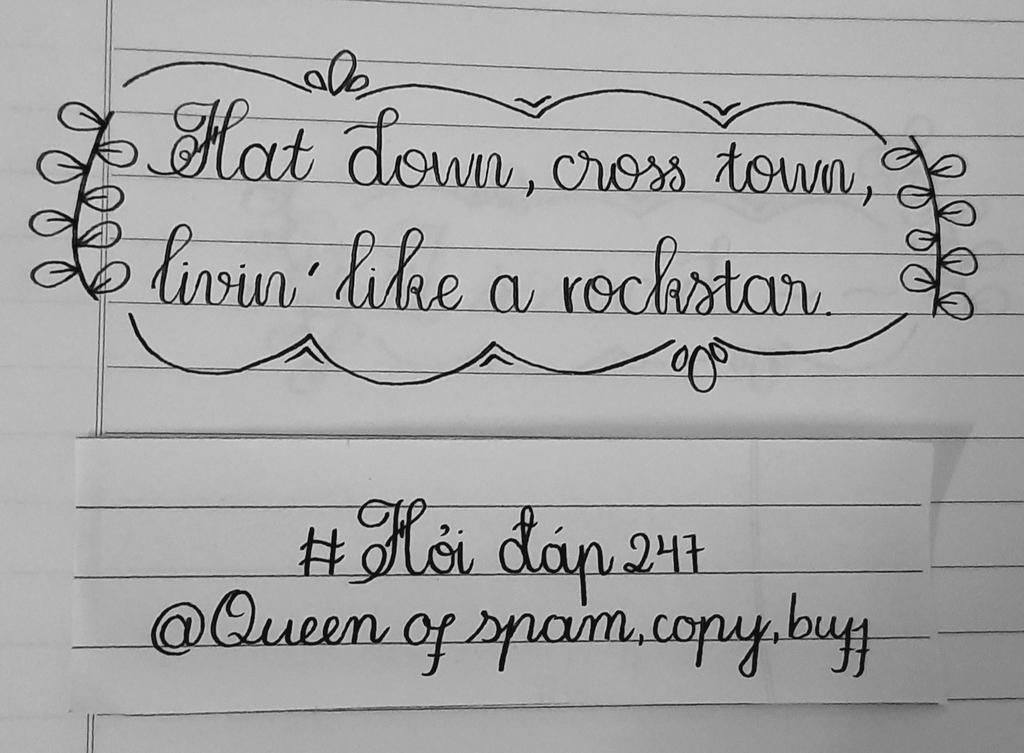 Hat down, cross town,
livin' like a rockstar.
#Hỏi đáp 247
@Queen of spam, copy, buff